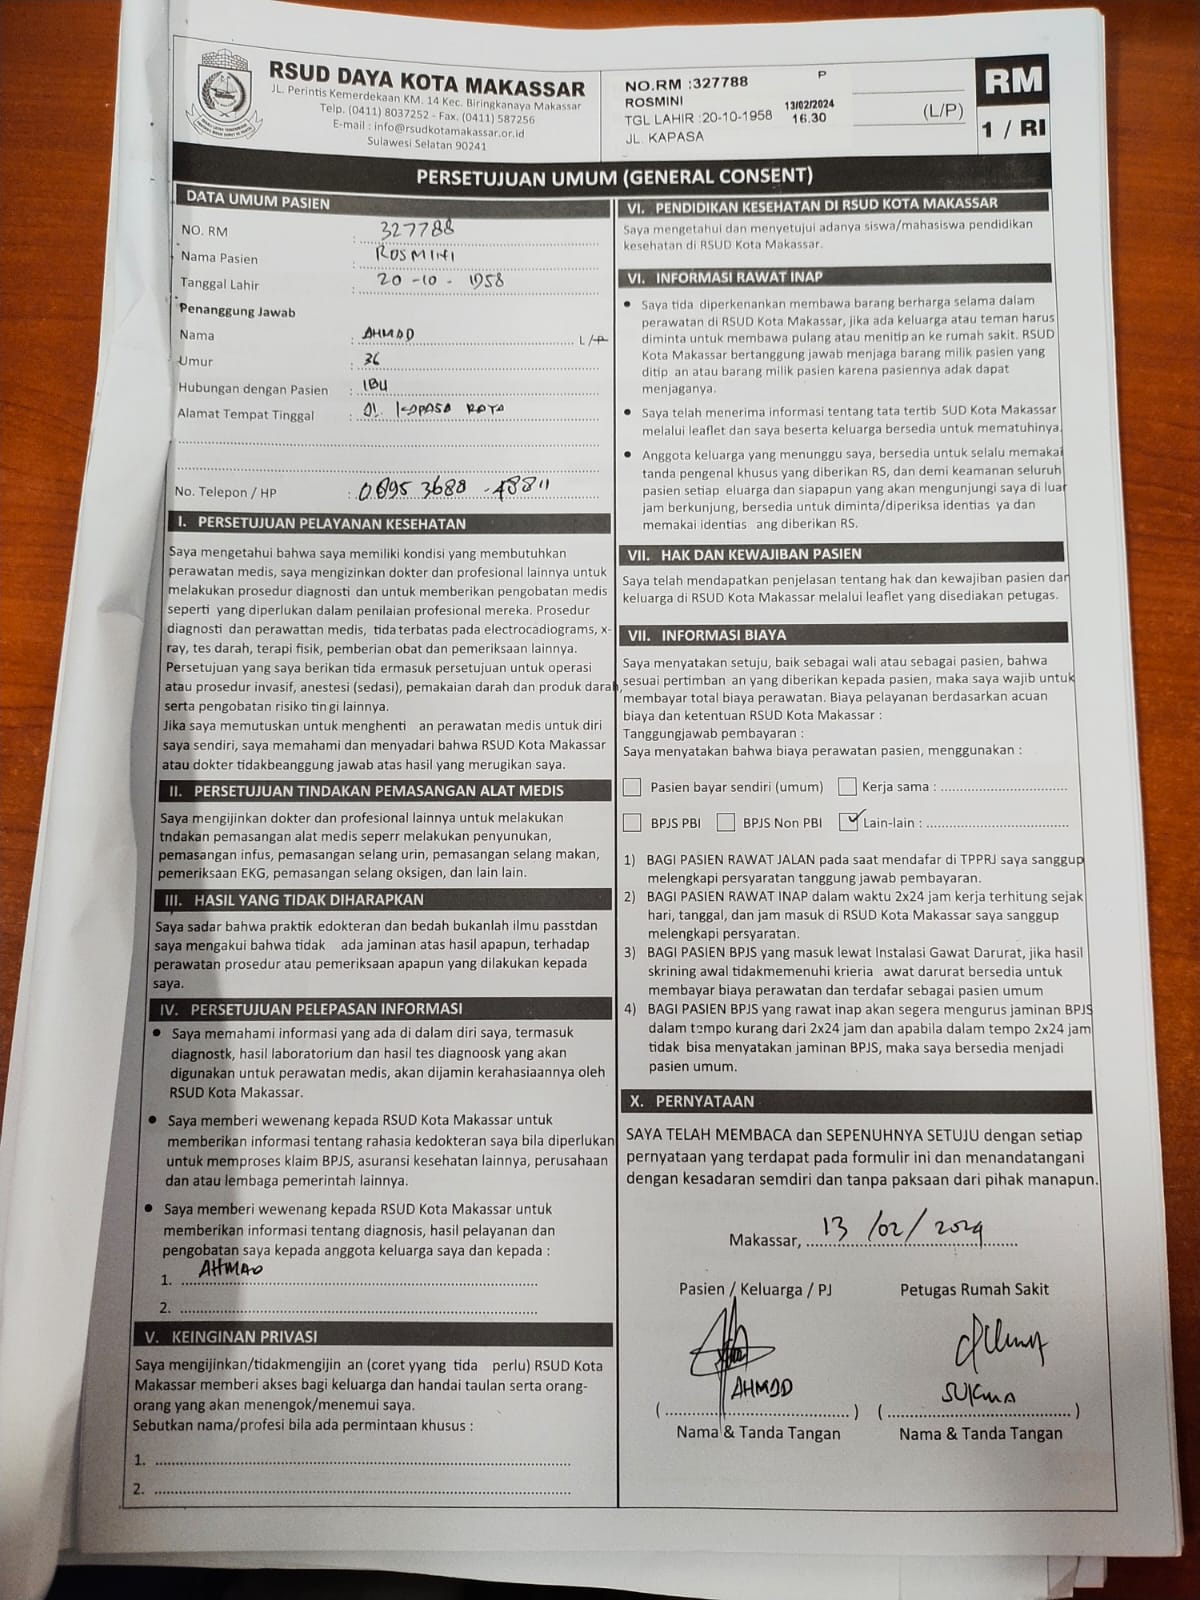 RSUD DAYA KOTA MAKASSAR
JL. Perintis Kemerdekaan KM. 14 Kec. Biringkanaya Makassar
Telp. (0411) 8037252 - Fax. (0411) 587256
E-mail : info@rsudkotamakassar.or.id
Sulawesi Selatan 90241
NO.RM :327788 P
ROSMINI 13/02/2024
TGL LAHIR :20-10-1958 16.30
JL. KAPASA
(L/P)
RM
1 / RI
PERSETUJUAN UMUM (GENERAL CONSENT)
DATA UMUM PASIEN
NO. RM : 327788
Nama Pasien ROSMINI
Tanggal Lahir : 20-10-1958
Penanggung Jawab
Nama : AHMAD L/P
Umur : 36
Hubungan dengan Pasien : IBU
Alamat Tempat Tinggal : JL. KAPASA RAYA
No. Telepon / HP : 0895 3688 4881
I. PERSETUJUAN PELAYANAN KESEHATAN
Saya mengetahui bahwa saya memiliki kondisi yang membutuhkan
perawatan medis, saya mengizinkan dokter dan profesional lainnya untuk
melakukan prosedur diagnosti dan untuk memberikan pengobatan medis
seperti yang diperlukan dalam penilaian profesional mereka. Prosedur
diagnosti dan perawattan medis, tida terbatas pada electrocadiograms, x-
ray, tes darah, terapi fisik, pemberian obat dan pemeriksaan lainnya.
Persetujuan yang saya berikan tida ermasuk persetujuan untuk operasi
atau prosedur invasif, anestesi (sedasi), pemakaian darah dan produk darah,
serta pengobatan risiko tin gi lainnya.
Jika saya memutuskan untuk menghenti an perawatan medis untuk diri
saya sendiri, saya memahami dan menyadari bahwa RSUD Kota Makassar
atau dokter tidakbeanggung jawab atas hasil yang merugikan saya.
II. PERSETUJUAN TINDAKAN PEMASANGAN ALAT MEDIS
Saya mengijinkan dokter dan profesional lainnya untuk melakukan
tndakan pemasangan alat medis seperr melakukan penyunukan,
pemasangan infus, pemasangan selang urin, pemasangan selang makan,
pemeriksaan EKG, pemasangan selang oksigen, dan lain lain.
III. HASIL YANG TIDAK DIHARAPKAN
Saya sadar bahwa praktik edokteran dan bedah bukanlah ilmu passtdan
saya mengakui bahwa tidak ada jaminan atas hasil apapun, terhadap
perawatan prosedur atau pemeriksaan apapun yang dilakukan kepada
saya.
IV. PERSETUJUAN PELEPASAN INFORMASI
• Saya memahami informasi yang ada di dalam diri saya, termasuk
diagnostk, hasil laboratorium dan hasil tes diagnoosk yang akan
digunakan untuk perawatan medis, akan dijamin kerahasiaannya oleh
RSUD Kota Makassar.
• Saya memberi wewenang kepada RSUD Kota Makassar untuk
memberikan informasi tentang rahasia kedokteran saya bila diperlukan
untuk memproses klaim BPJS, asuransi kesehatan lainnya, perusahaan
dan atau lembaga pemerintah lainnya.
• Saya memberi wewenang kepada RSUD Kota Makassar untuk
memberikan informasi tentang diagnosis, hasil pelayanan dan
pengobatan saya kepada anggota keluarga saya dan kepada :
1. AHMAD
2.
V. KEINGINAN PRIVASI
Saya mengijinkan/tidakmengijin an (coret yyang tida perlu) RSUD Kota
Makassar memberi akses bagi keluarga dan handai taulan serta orang-
orang yang akan menengok/menemui saya.
Sebutkan nama/profesi bila ada permintaan khusus :
1.
2.
VI. PENDIDIKAN KESEHATAN DI RSUD KOTA MAKASSAR
Saya mengetahui dan menyetujui adanya siswa/mahasiswa pendidikan
kesehatan di RSUD Kota Makassar.
VI. INFORMASI RAWAT INAP
• Saya tida diperkenankan membawa barang berharga selama dalam
perawatan di RSUD Kota Makassar, jika ada keluarga atau teman harus
diminta untuk membawa pulang atau menitip an ke rumah sakit. RSUD
Kota Makassar bertanggung jawab menjaga barang milik pasien yang
ditip an atau barang milik pasien karena pasiennya adak dapat
menjaganya.
• Saya telah menerima informasi tentang tata tertib SUD Kota Makassar
melalui leaflet dan saya beserta keluarga bersedia untuk mematuhinya.
• Anggota keluarga yang menunggu saya, bersedia untuk selalu memakai
tanda pengenal khusus yang diberikan RS, dan demi keamanan seluruh
pasien setiap eluarga dan siapapun yang akan mengunjungi saya di luar
jam berkunjung, bersedia untuk diminta/diperiksa identias ya dan
memakai identias ang diberikan RS.
VII. HAK DAN KEWAJIBAN PASIEN
Saya telah mendapatkan penjelasan tentang hak dan kewajiban pasien dan
keluarga di RSUD Kota Makassar melalui leaflet yang disediakan petugas.
VII. INFORMASI BIAYA
Saya menyatakan setuju, baik sebagai wali atau sebagai pasien, bahwa
sesuai pertimban an yang diberikan kepada pasien, maka saya wajib untuk
membayar total biaya perawatan. Biaya pelayanan berdasarkan acuan
biaya dan ketentuan RSUD Kota Makassar :
Tanggungjawab pembayaran :
Saya menyatakan bahwa biaya perawatan pasien, menggunakan :
Pasien bayar sendiri (umum) Kerja sama :
BPJS PBI BPJS Non PBI ✓ Lain-lain :
1) BAGI PASIEN RAWAT JALAN pada saat mendafar di TPPRJ saya sanggup
melengkapi persyaratan tanggung jawab pembayaran.
2) BAGI PASIEN RAWAT INAP dalam waktu 2x24 jam kerja terhitung sejak
hari, tanggal, dan jam masuk di RSUD Kota Makassar saya sanggup
melengkapi persyaratan.
3) BAGI PASIEN BPJS yang masuk lewat Instalasi Gawat Darurat, jika hasil
skrining awal tidakmemenuhi krieria awat darurat bersedia untuk
membayar biaya perawatan dan terdafar sebagai pasien umum
4) BAGI PASIEN BPJS yang rawat inap akan segera mengurus jaminan BPJS
dalam tempo kurang dari 2x24 jam dan apabila dalam tempo 2x24 jam
tidak bisa menyatakan jaminan BPJS, maka saya bersedia menjadi
pasien umum.
X. PERNYATAAN
SAYA TELAH MEMBACA dan SEPENUHNYA SETUJU dengan setiap
pernyataan yang terdapat pada formulir ini dan menandatangani
dengan kesadaran semdiri dan tanpa paksaan dari pihak manapun.
Makassar, 13/02/2024
Pasien / Keluarga / PJ Petugas Rumah Sakit
AHMAD SUKMA
Nama & Tanda Tangan Nama & Tanda Tangan